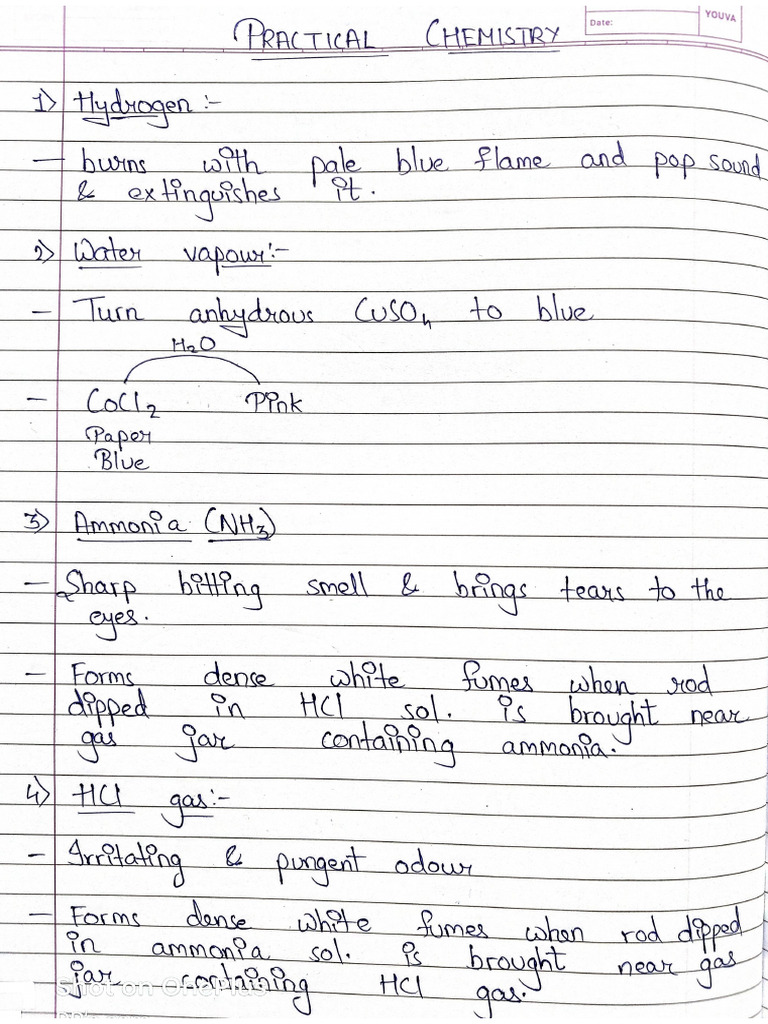 PRACTICAL CHEMISTRY
Date:
YOUVA
1) Hydrogen :-
— burns with pale blue flame and pop sound
& extinguishes it.
2) Water vapour:-
— Turn anhydrous CuSO4 to blue
H2O
— CoCl2 Pink
Paper
Blue
3) Ammonia (NH3)
— Sharp bitting smell & brings tears to the
eyes.
— Forms dense white fumes when rod
dipped in HCl sol. is brought near
gas jar containing ammonia.
4) HCl gas:-
— Irritating & pungent odour
— Forms dense white fumes when rod dipped
in ammonia sol. is brought near gas
jar containing HCl gas.
Shot on OnePlus